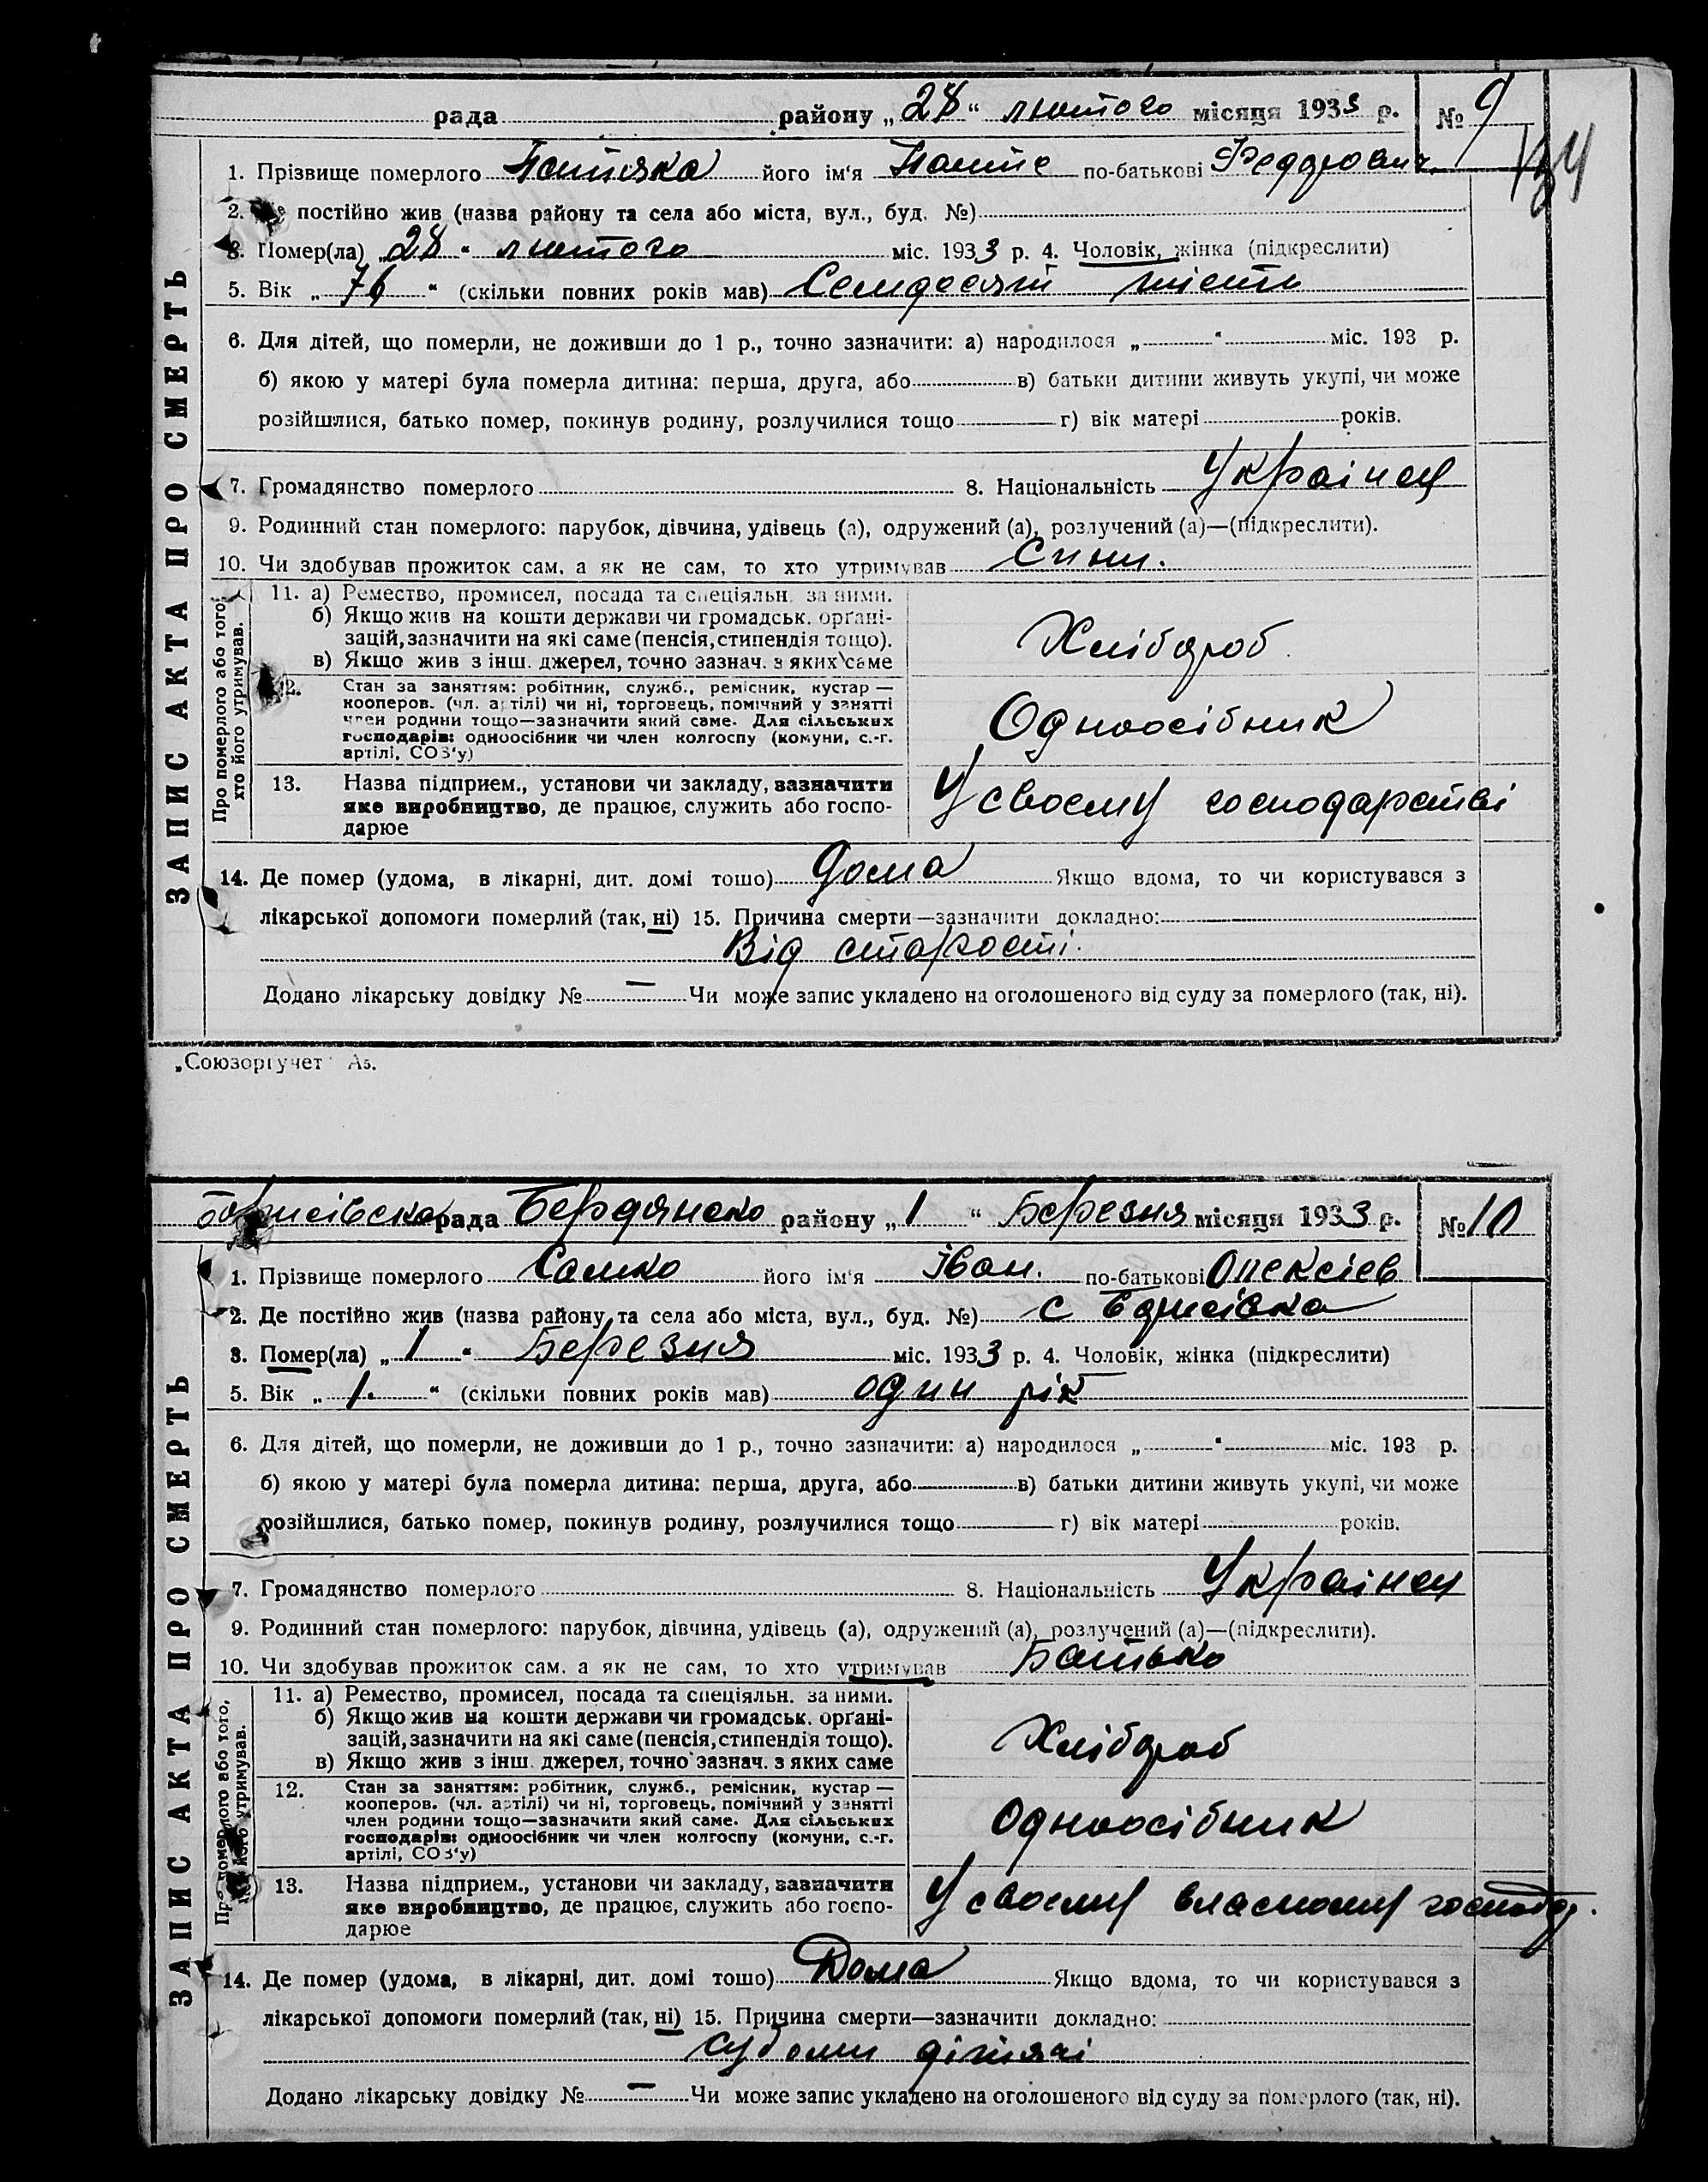 рада району „28“ лютого місяця 1933 р. № 9
134
1. Прізвище померлого його ім‘я по-батькові Феддрович
2. постійно жив (назва району та села або міста, вул., буд. №)
3. Помер(ла) „28“ лютого міс. 1933 р. 4. Чоловік, жінка (підкреслити)
5. Вік „76“ (скільки повних років мав) Семдесят шість
6. Для дітей, що померли, не доживши до 1 р., точно зазначити: а) народилося „ “ міс. 193 р.
б) якою у матері була померла дитина: перша, друга, або в) батьки дитини живуть укупі, чи може
розійшлися, батько помер, покинув родину, розлучилися тощо г) вік матері років.
7. Громадянство померлого 8. Національність Українец
9. Родинний стан померлого: парубок, дівчина, удівець (а), одружений (а), розлучений (а)—(підкреслити).
10. Чи здобував прожиток сам, а як не сам, то хто утримував Сини.
ЗАПИС АКТА ПРО СМЕРТЬ
Про померлого або того, хто його утримував.
11. а) Ремество, промисел, посада та спеціяльн. за ними.
б) Якщо жив на кошти держави чи громадськ. орґані-
зацій, зазначити на які саме (пенсія, стипендія тощо).
в) Якщо жив з інш. джерел, точно зазнач. з яких саме
Хлібороб
12. Стан за заняттям: робітник, служб., ремісник, кустар —
кооперов. (чл. артілі) чи ні, торговець, помічний у занятті
член родини тощо—зазначити який саме. Для сільських
господарів: одноосібник чи член колгоспу (комуни, с.-г.
артілі, СОЗ‘у)
Одноосібник
13. Назва підприєм., установи чи закладу, зазначити
яке виробництво, де працює, служить або госпо-
дарює
У своєму господарстві
14. Де помер (удома, в лікарні, дит. домі тощо) Дома Якщо вдома, то чи користувався з
лікарської допомоги померлий (так, ні) 15. Причина смерти—зазначити докладно:
Від старості.
Додано лікарську довідку № — Чи може запис укладено на оголошеного від суду за померлого (так, ні).
„Союзоргучет“ А5.
Борисівська рада Бердянско району „1“ Березня місяця 1933 р. № 10
1. Прізвище померлого Самко його ім‘я Іван. по-батькові Олексієв
2. Де постійно жив (назва району та села або міста, вул., буд. №) с Борисівка
3. Помер(ла) „1“ Березня міс. 1933 р. 4. Чоловік, жінка (підкреслити)
5. Вік „1.“ (скільки повних років мав) один рік
6. Для дітей, що померли, не доживши до 1 р., точно зазначити: а) народилося „ “ міс. 193 р.
б) якою у матері була померла дитина: перша, друга, або в) батьки дитини живуть укупі, чи може
розійшлися, батько помер, покинув родину, розлучилися тощо г) вік матері років.
7. Громадянство померлого 8. Національність Українец
9. Родинний стан померлого: парубок, дівчина, удівець (а), одружений (а), розлучений (а)—(підкреслити).
10. Чи здобував прожиток сам, а як не сам, то хто утримував Батько
ЗАПИС АКТА ПРО СМЕРТЬ
Про померлого або того, хто його утримував.
11. а) Ремество, промисел, посада та спеціяльн. за ними.
б) Якщо жив на кошти держави чи громадськ. орґані-
зацій, зазначити на які саме (пенсія, стипендія тощо).
в) Якщо жив з інш. джерел, точно зазнач. з яких саме
Хлібороб
12. Стан за заняттям: робітник, служб., ремісник, кустар —
кооперов. (чл. артілі) чи ні, торговець, помічний у занятті
член родини тощо—зазначити який саме. Для сільських
господарів: одноосібник чи член колгоспу (комуни, с.-г.
артілі, СОЗ‘у)
Одноосібник
13. Назва підприєм., установи чи закладу, зазначити
яке виробництво, де працює, служить або госпо-
дарює
У своєму власному господ.
14. Де помер (удома, в лікарні, дит. домі тощо) Дома Якщо вдома, то чи користувався з
лікарської допомоги померлий (так, ні) 15. Причина смерти—зазначити докладно:
Судоми дітячі
Додано лікарську довідку № — Чи може запис укладено на оголошеного від суду за померлого (так, ні).